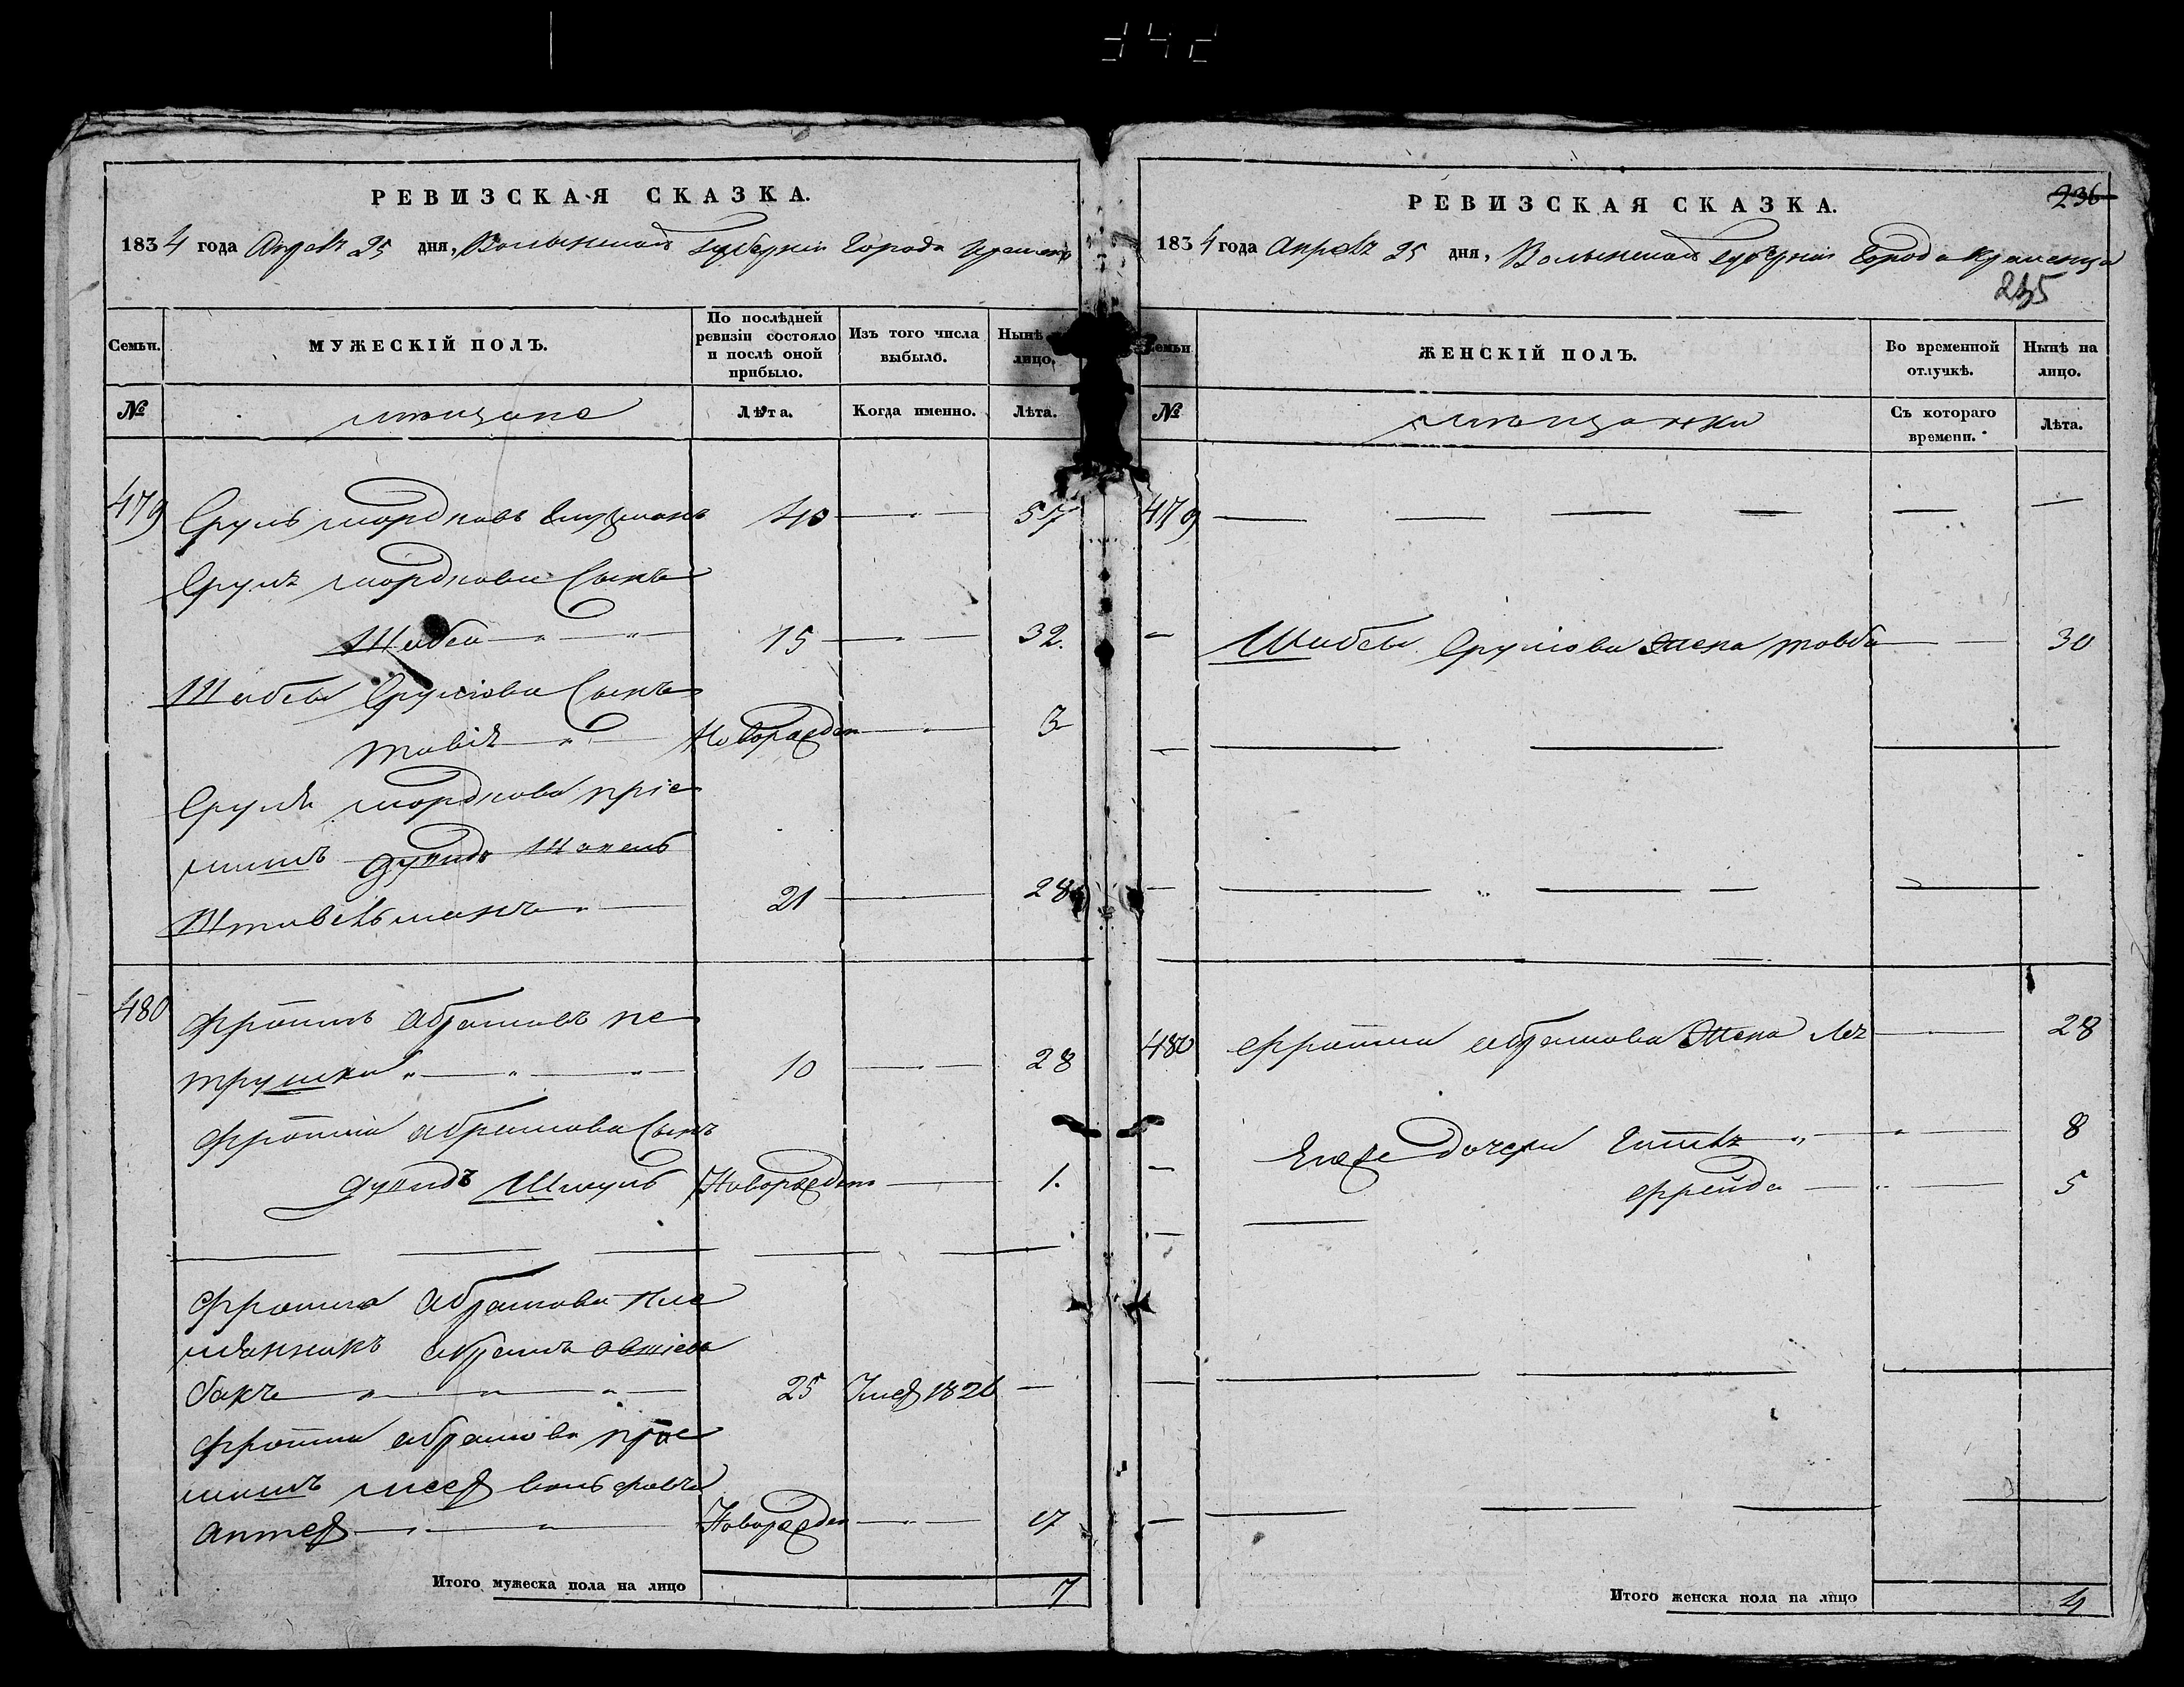 РЕВИЗСКАЯ СКАЗКА.
1834 года Апреля 25 дня, Волынской Губернии Города Кременца
Семьи.
МУЖЕСКІЙ ПОЛЪ.
По послѣдней ревизіи состояло и послѣ оной прибыло.
Изъ того числа выбыло.
Нынѣ лицо.
№
мещане
Лѣта.
Когда именно.
Лѣта.
479 Сруль Мордковъ 40 57
Сруля Мордкова Сынъ
Шабса 15 32.
Шабсы Срулiова Сынъ
Товія Новоражден 3
Сруля Мордкова пріе
мышъ Дувидъ
Штивельманъ 21 28
480 Фроимъ Абрамовъ Пе
трушка 10 28
Фроима Абрамова Сынъ
Дувидъ Шмуль Новоражден 1.
Фроима Абрамова пле
мянникъ Абрамъ
бакъ 25 Умер 1826
Фроима Абрамова прiе
мышъ Меер Вольфовъ
Аптер Новоражден 17
Итого мужеска пола на лицо 7
РЕВИЗСКАЯ СКАЗКА.
236
1834 года Апреля 25 дня, Волынской Губернии Города Кременца
235
Семьи
ЖЕНСКІЙ ПОЛЪ.
Во временной отлучкѣ.
Нынѣ на лицо.
№
мещанки
Съ котораго времени.
Лѣта.
479
Шабсы Срулiова Жена Товба 30
480 Фроима Абрамова Жена Лея 28
Его же дочери Гитля 8
Фрейда 5
Итого женска пола на лицо 4